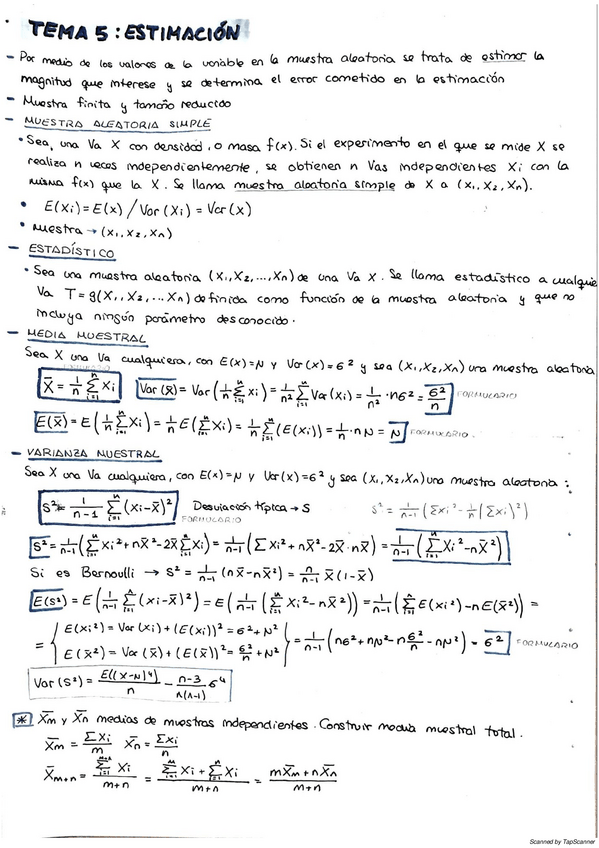 TEMA 5: ESTIMACIÓN
- Por medio de los valores de la variable en la muestra aleatoria se trata de estimar la
magnitud que interese y se determina el error cometido en la estimación
- Muestra finita y tamaño reducido
- MUESTRA ALEATORIA SIMPLE
• Sea, una Va X con densidad, o masa f(x). Si el experimento en el que se mide X se
realiza n veces independientemente, se obtienen n Vas independientes Xi con la
misma f(x) que la X. Se llama muestra aleatoria simple de X a (X₁, X₂, Xn).
• E(Xi) = E(x) / Var(Xi) = Var(x)
• Muestra → (X₁, X₂, Xn)
- ESTADÍSTICO
• Sea una muestra aleatoria (X₁, X₂, ..., Xn) de una Va X. Se llama estadístico a cualquie
Va T = g(X₁, X₂, ... Xn) definida como función de la muestra aleatoria y que no
incluya ningún parámetro desconocido.
- MEDIA MUESTRAL
Sea X una Va cualquiera, con E(x) = μ y Var(x) = σ² y sea (X₁, X₂, Xn) una muestra aleatoria
X̄ = 1/n Σᵢ₌₁ⁿ Xi Var(x̄) = Var(1/n Σᵢ₌₁ⁿ Xi) = 1/n² Σᵢ₌₁ⁿ Var(Xi) = 1/n² · nσ² = σ²/n FORMULARIO
E(x̄) = E(1/n Σᵢ₌₁ⁿ Xi) = 1/n E(Σᵢ₌₁ⁿ Xi) = 1/n Σᵢ₌₁ⁿ (E(Xi)) = 1/n · n μ = μ FORMULARIO.
- VARIANZA MUESTRAL
Sea X una Va cualquiera, con E(x) = μ y Var(x) = σ² y sea (X₁, X₂, Xn) una muestra aleatoria :
S² = 1/(n-1) Σᵢ₌₁ⁿ (Xi - X̄)² Desviación típica → S S² = 1/(n-1) (ΣXi² - 1/n (ΣXi)²)
FORMULARIO
S² = 1/(n-1) (Σᵢ₌₁ⁿ Xi² + nX̄² - 2X̄ ΣXi) = 1/(n-1) (ΣXi² + nX̄² - 2X̄ · nX̄) = 1/(n-1) (Σᵢ₌₁ⁿ Xi² - nX̄²)
Si es Bernoulli → S² = 1/(n-1) (nX̄ - nX̄²) = n/(n-1) X̄(1-X̄)
E(S²) = E(1/(n-1) Σᵢ₌₁ⁿ (Xi - X̄)²) = E(1/(n-1) (Σᵢ₌₁ⁿ Xi² - nX̄²)) = 1/(n-1) (Σᵢ₌₁ⁿ E(Xi²) - nE(X̄²)) =
= { E(Xi²) = Var(Xi) + (E(Xi))² = σ² + μ²
E(X̄²) = Var(X̄) + (E(X̄))² = σ²/n + μ² } = 1/(n-1) (nσ² + nμ² - n σ²/n - nμ²) = σ² FORMULARIO
Var(S²) = E((X-μ)⁴)/n - (n-3)/(n(n-1)) σ⁴
* X̄m y X̄n medias de muestras independientes. Construir media muestral total.
X̄m = ΣXi/m X̄n = ΣXi/n
X̄m+n = Σᵢ₌₁ᵐ⁺ⁿ Xi/(m+n) = (Σᵢ₌₁ᵐ Xi + Σᵢ₌₁ⁿ Xi)/(m+n) = (mX̄m + nX̄n)/(m+n)
Scanned by TapScanner